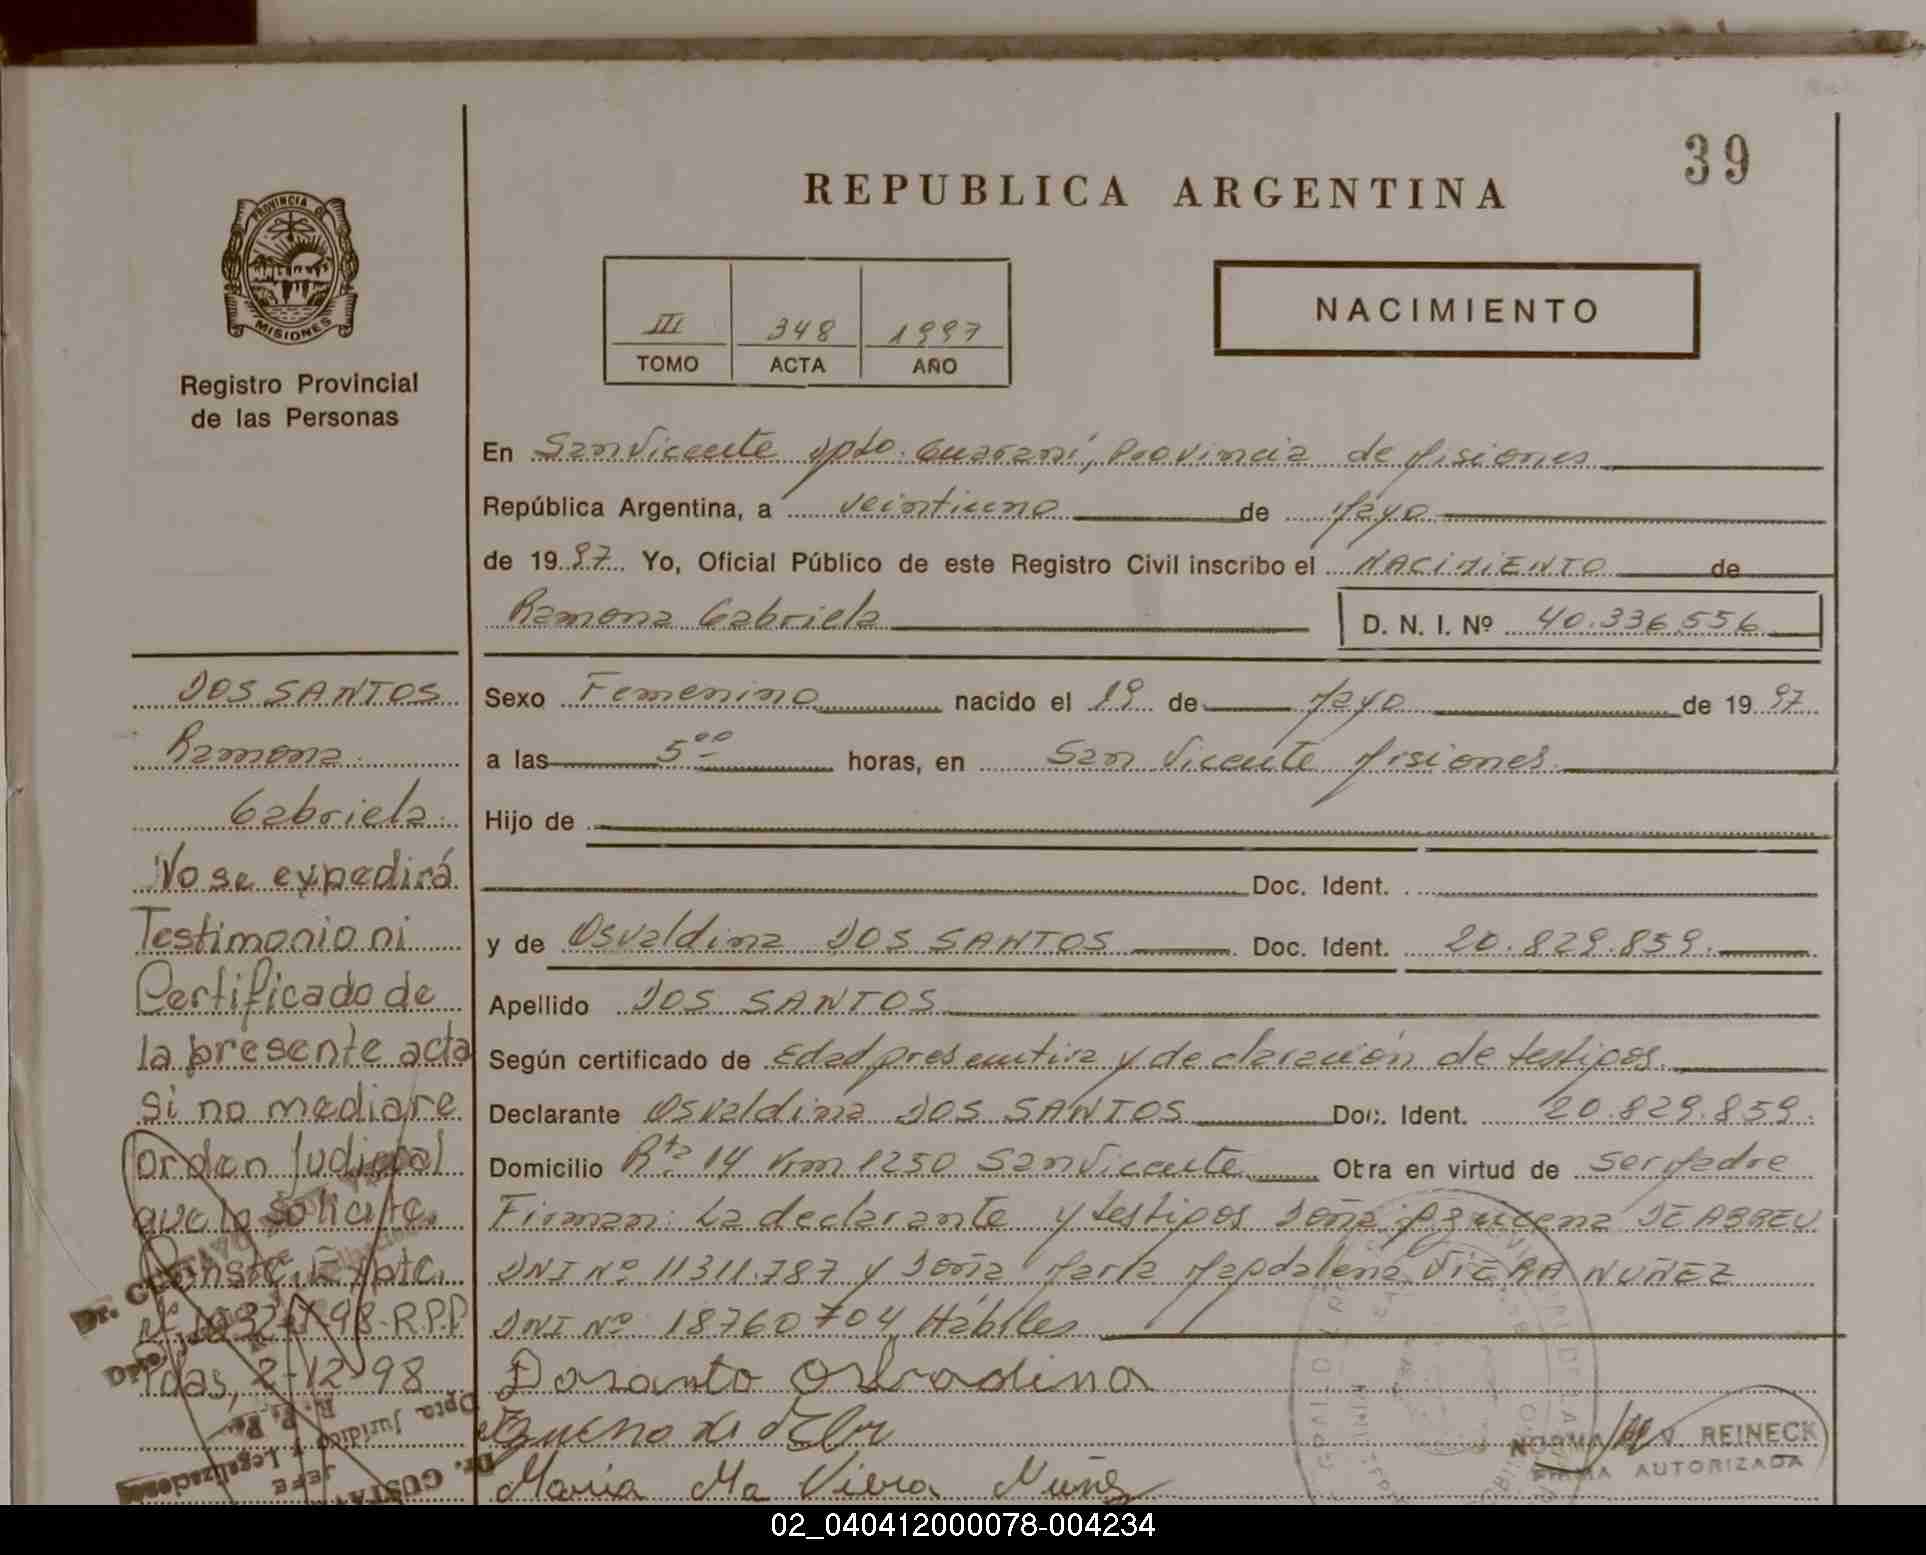 39
REPUBLICA ARGENTINA
PROVINCIA DE
MISIONES
Registro Provincial
de las Personas
III 348 1997
TOMO ACTA AÑO
NACIMIENTO
En San Vicente Dpto. Guaraní, Provincia de Misiones
República Argentina, a veintiuno de Mayo
de 1997 Yo, Oficial Público de este Registro Civil inscribo el NACIMIENTO de
Ramona Gabriela D. N. I. Nº 40.336.556
Sexo Femenino nacido el 19 de Mayo de 1997
a las 5 00 horas, en San Vicente Misiones
Hijo de
Doc. Ident.
y de Osvaldina DOS SANTOS Doc. Ident. 20.829.859.
Apellido DOS SANTOS
Según certificado de Edad presuntiva y declaración de testigos
Declarante Osvaldina DOS SANTOS Doc. Ident. 20.829.859.
Domicilio Rta 14 Km 1250 San Vicente Obra en virtud de ser Madre
Firman: La declarante y testigos Doña Azucena DE ABREU
DNI Nº 11311.787 y Doña María Magdalena VIERA NUÑEZ
DNI Nº 18760704 Hábiles
María Ma Viera Nuñez
NORMA V. REINECK
FIRMA AUTORIZADA
DOS SANTOS
Ramona
Gabriela
No se expedirá
Testimonio ni
Certificado de
la presente acta
si no mediare
orden Judicial
que lo solicite.
Conste. Expte.
98-R.P.P
Pdas, 2-12-98
Dpto. Jurídico y Legalizaciones
JEFE
02_040412000078-004234